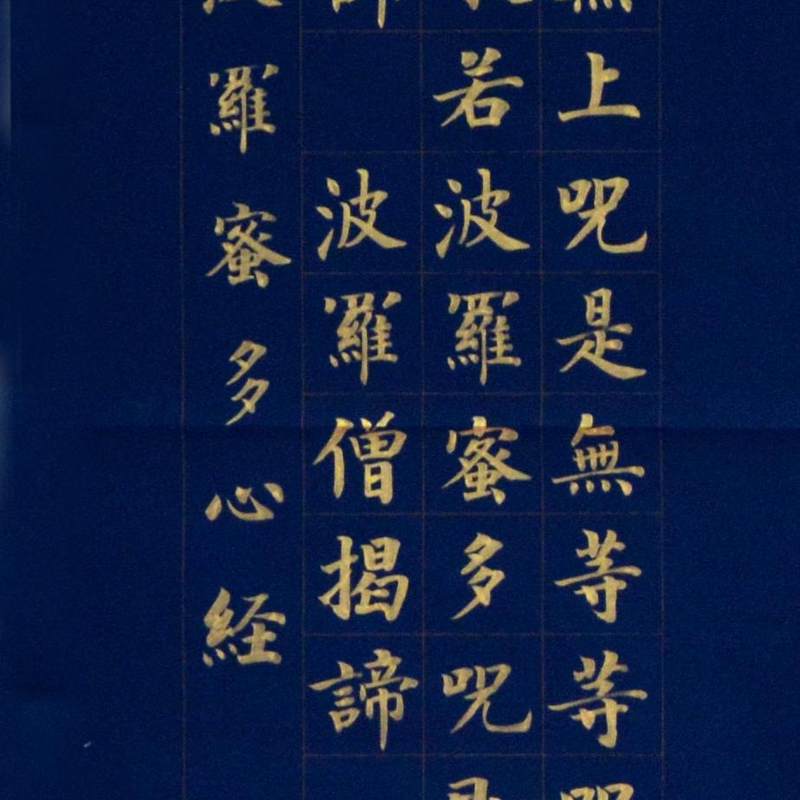 無上呪是無等等呪
若波羅蜜多呪
諦 波羅僧揭諦
波羅蜜多心経